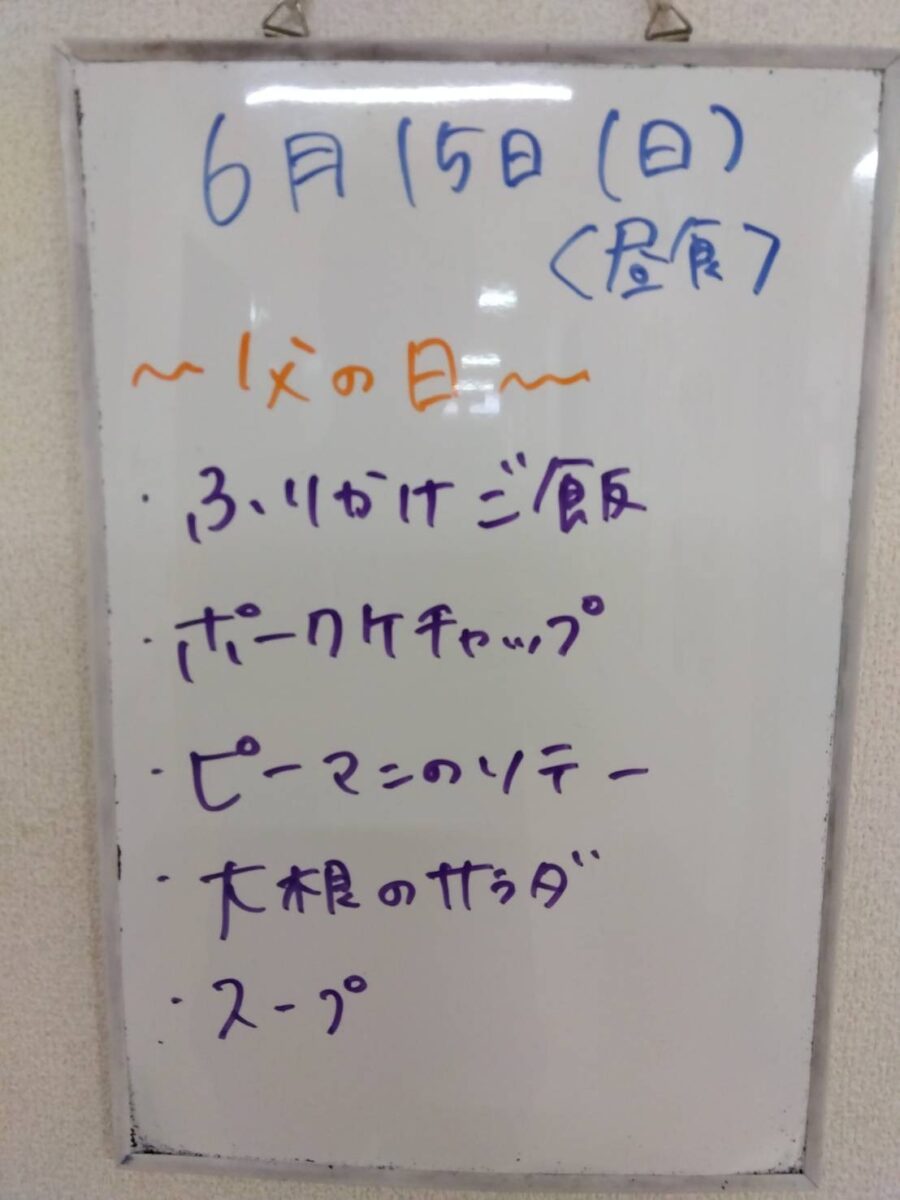 6月15日(日)
〈昼食〉
～父の日～
・ふりかけご飯
・ポークケチャップ
・ピーマンのソテー
・大根のサラダ
・スープ